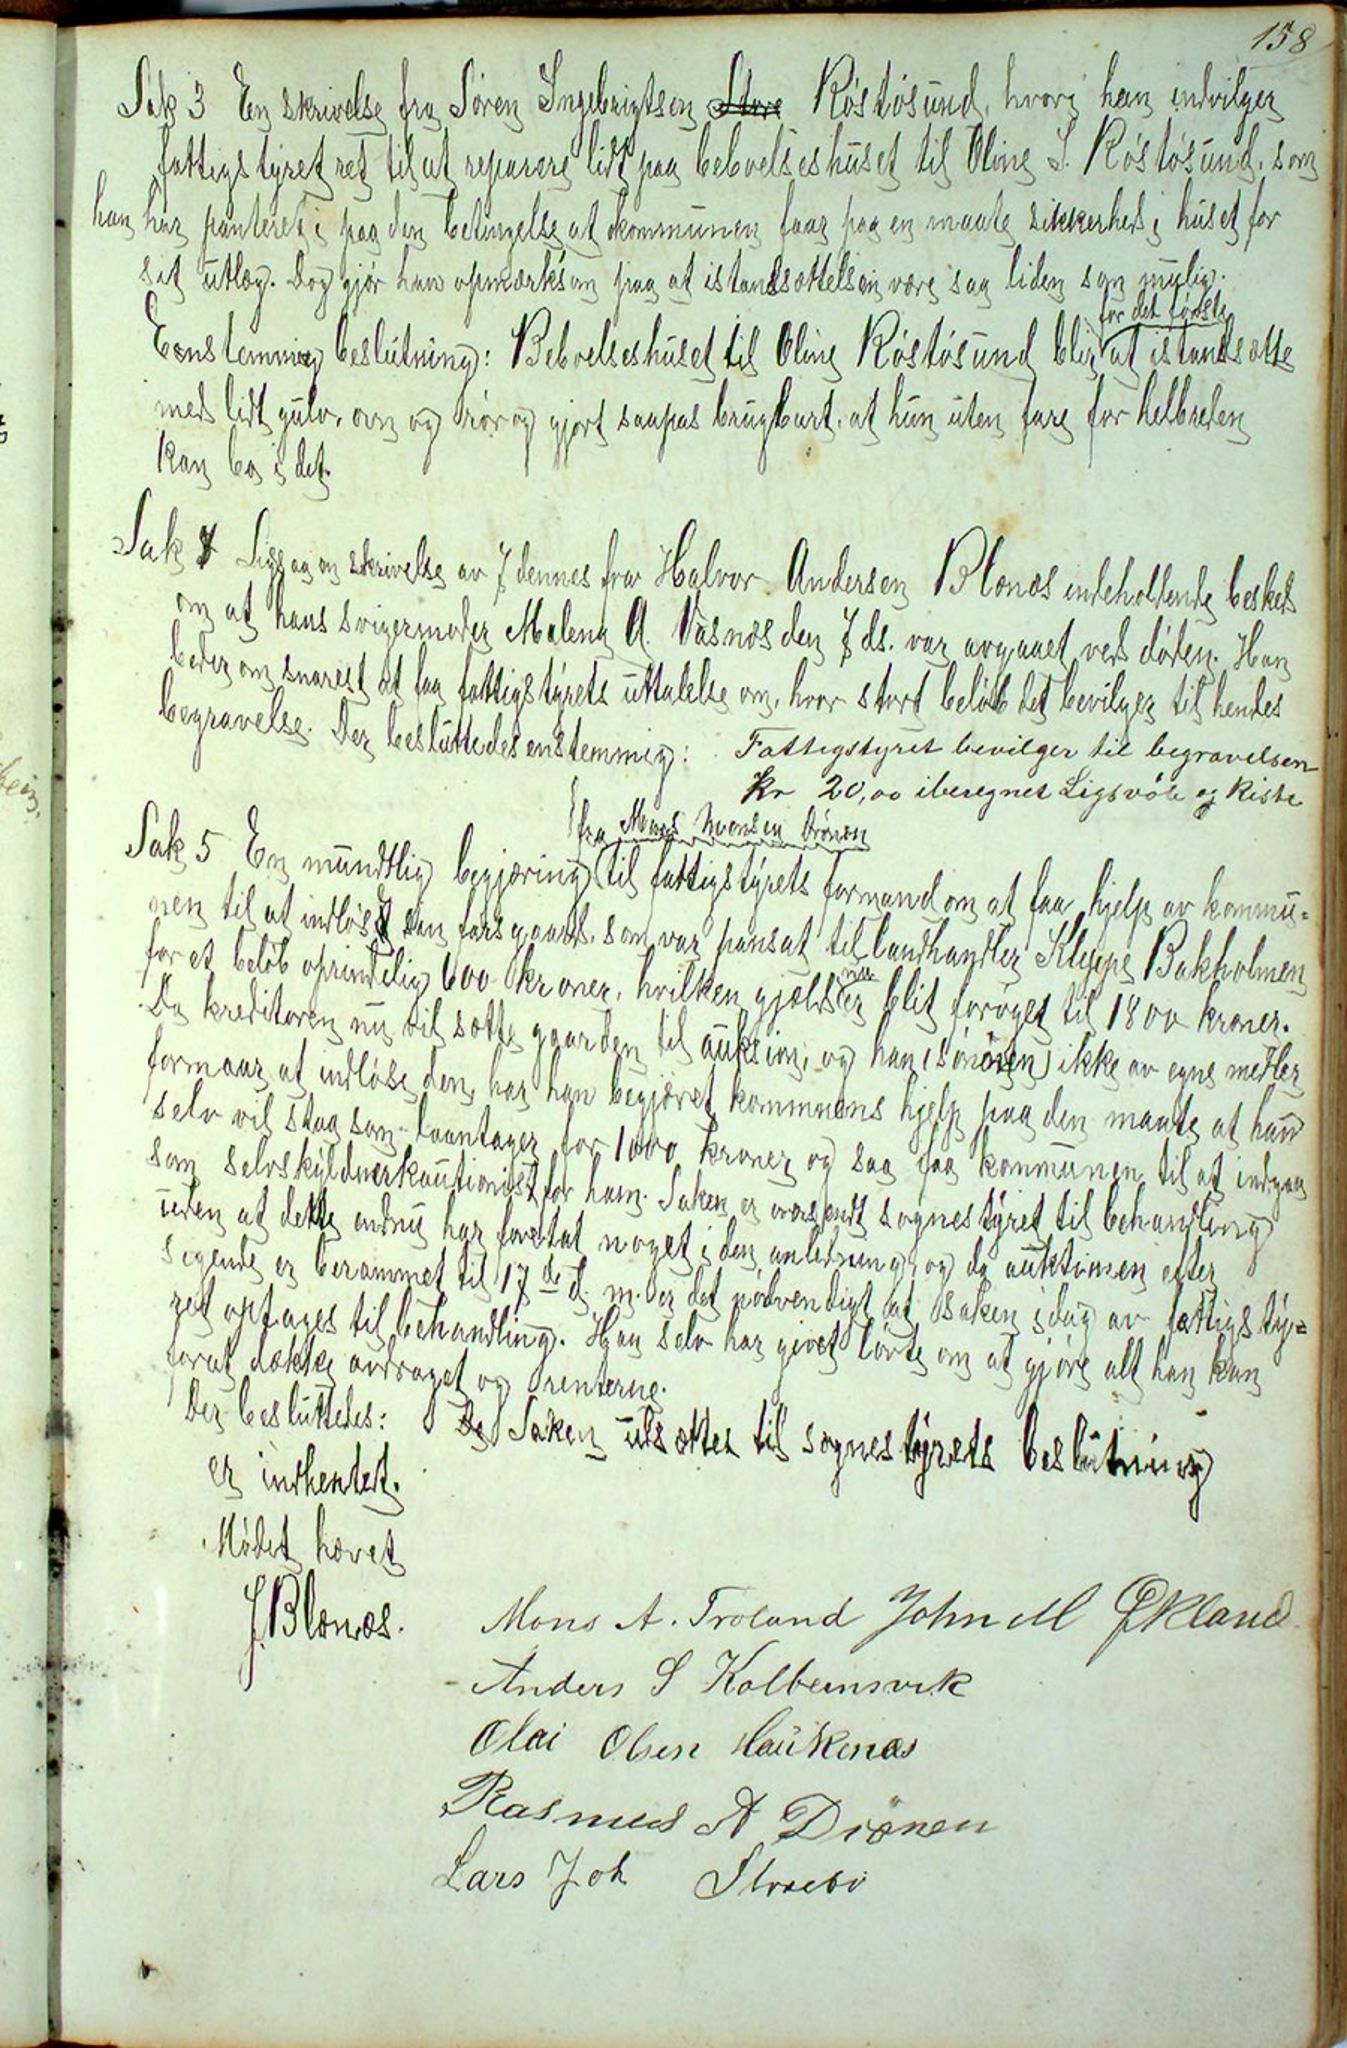 158
Sak 3 En skrivelse fra Sören Ingebrigtsen Store Röstösund, hvori han indvilger
fattigstyret ret til at reparere lidt paa beboelseshuset til Oline S. Röstösund, som
han har panteret i paa den betingelse at kommunen faar paa en maate sikkerhed i huset for
sit utlæg. Dog gjör han opmærksom paa at istandsættelsen være saa liden som mulig.
for det förste
Eenstemmig beslutning: Beboelseshuset til Oline Röstösund blir at istandsætte
med lidt gulv, ovn og rör og gjort saapas brugbart, at hun uten fare for helbreden
kan bo i det.
Sak 4 Ligesaa en skrivelse av 7 dennes fra Halvor Andersen Blænæs indeholdende besked
om at hans svigermoder Malena A. Vasnæs den 7 ds. var avgaaet ved döden. Han
beder om snarest at faa fattigstyrets uttalelse om, hvor stort belöb det bevilger til hendes
begravelse. Der besluttedes enstemmig: Fattigstyret bevilger til begravelsen
kr 20,00 iberegnet Ligsvöb og Kiste
fra Mons Monsen Drönen
Sak 5 En mundtlig begjæring til fattigstyrets formand om at faa hjelp av kommu=
nen til at indlöse sin farsgaard, som var pansat til landhandler Kleppe Bakholmen
for et belöb oprindelig 600 kroner, hvilken gjæld nu er blit foröget til 1800 kroner.
Da kreditoren nu vil sætte gaarden til auksion, og han (sönnen) ikke av egne midler
formaar at indlöse den, har han begjæret kommunens hjelp paa den maate at han
selv vil staa som laantager for 1000 kroner og saa faa kommunen til at indgaa
som selvskyldnerkautionist for ham. Saken er oversendt sognestyret til behandling
uden at dette endnu har foretat noget i den anledning, og da auktionen efter
sigende er berammet til 17de d. m. er det nödvendigt at saken idag av fattigsty=
ret optages til behandling. Han selv har givet lövte om at gjöre alt han kan
forat dække avdraget og renterne.
Der besluttedes: De Saken utsættes til sognestyrets beslutning
er indhentet.
Mödet hævet
J. Blænæs. Mons A. Troland John M Økland
Anders S Kolbeinsvik
Olai Olsen Haukenæs
Rasmus A Drönen
Lars Joh Storebö